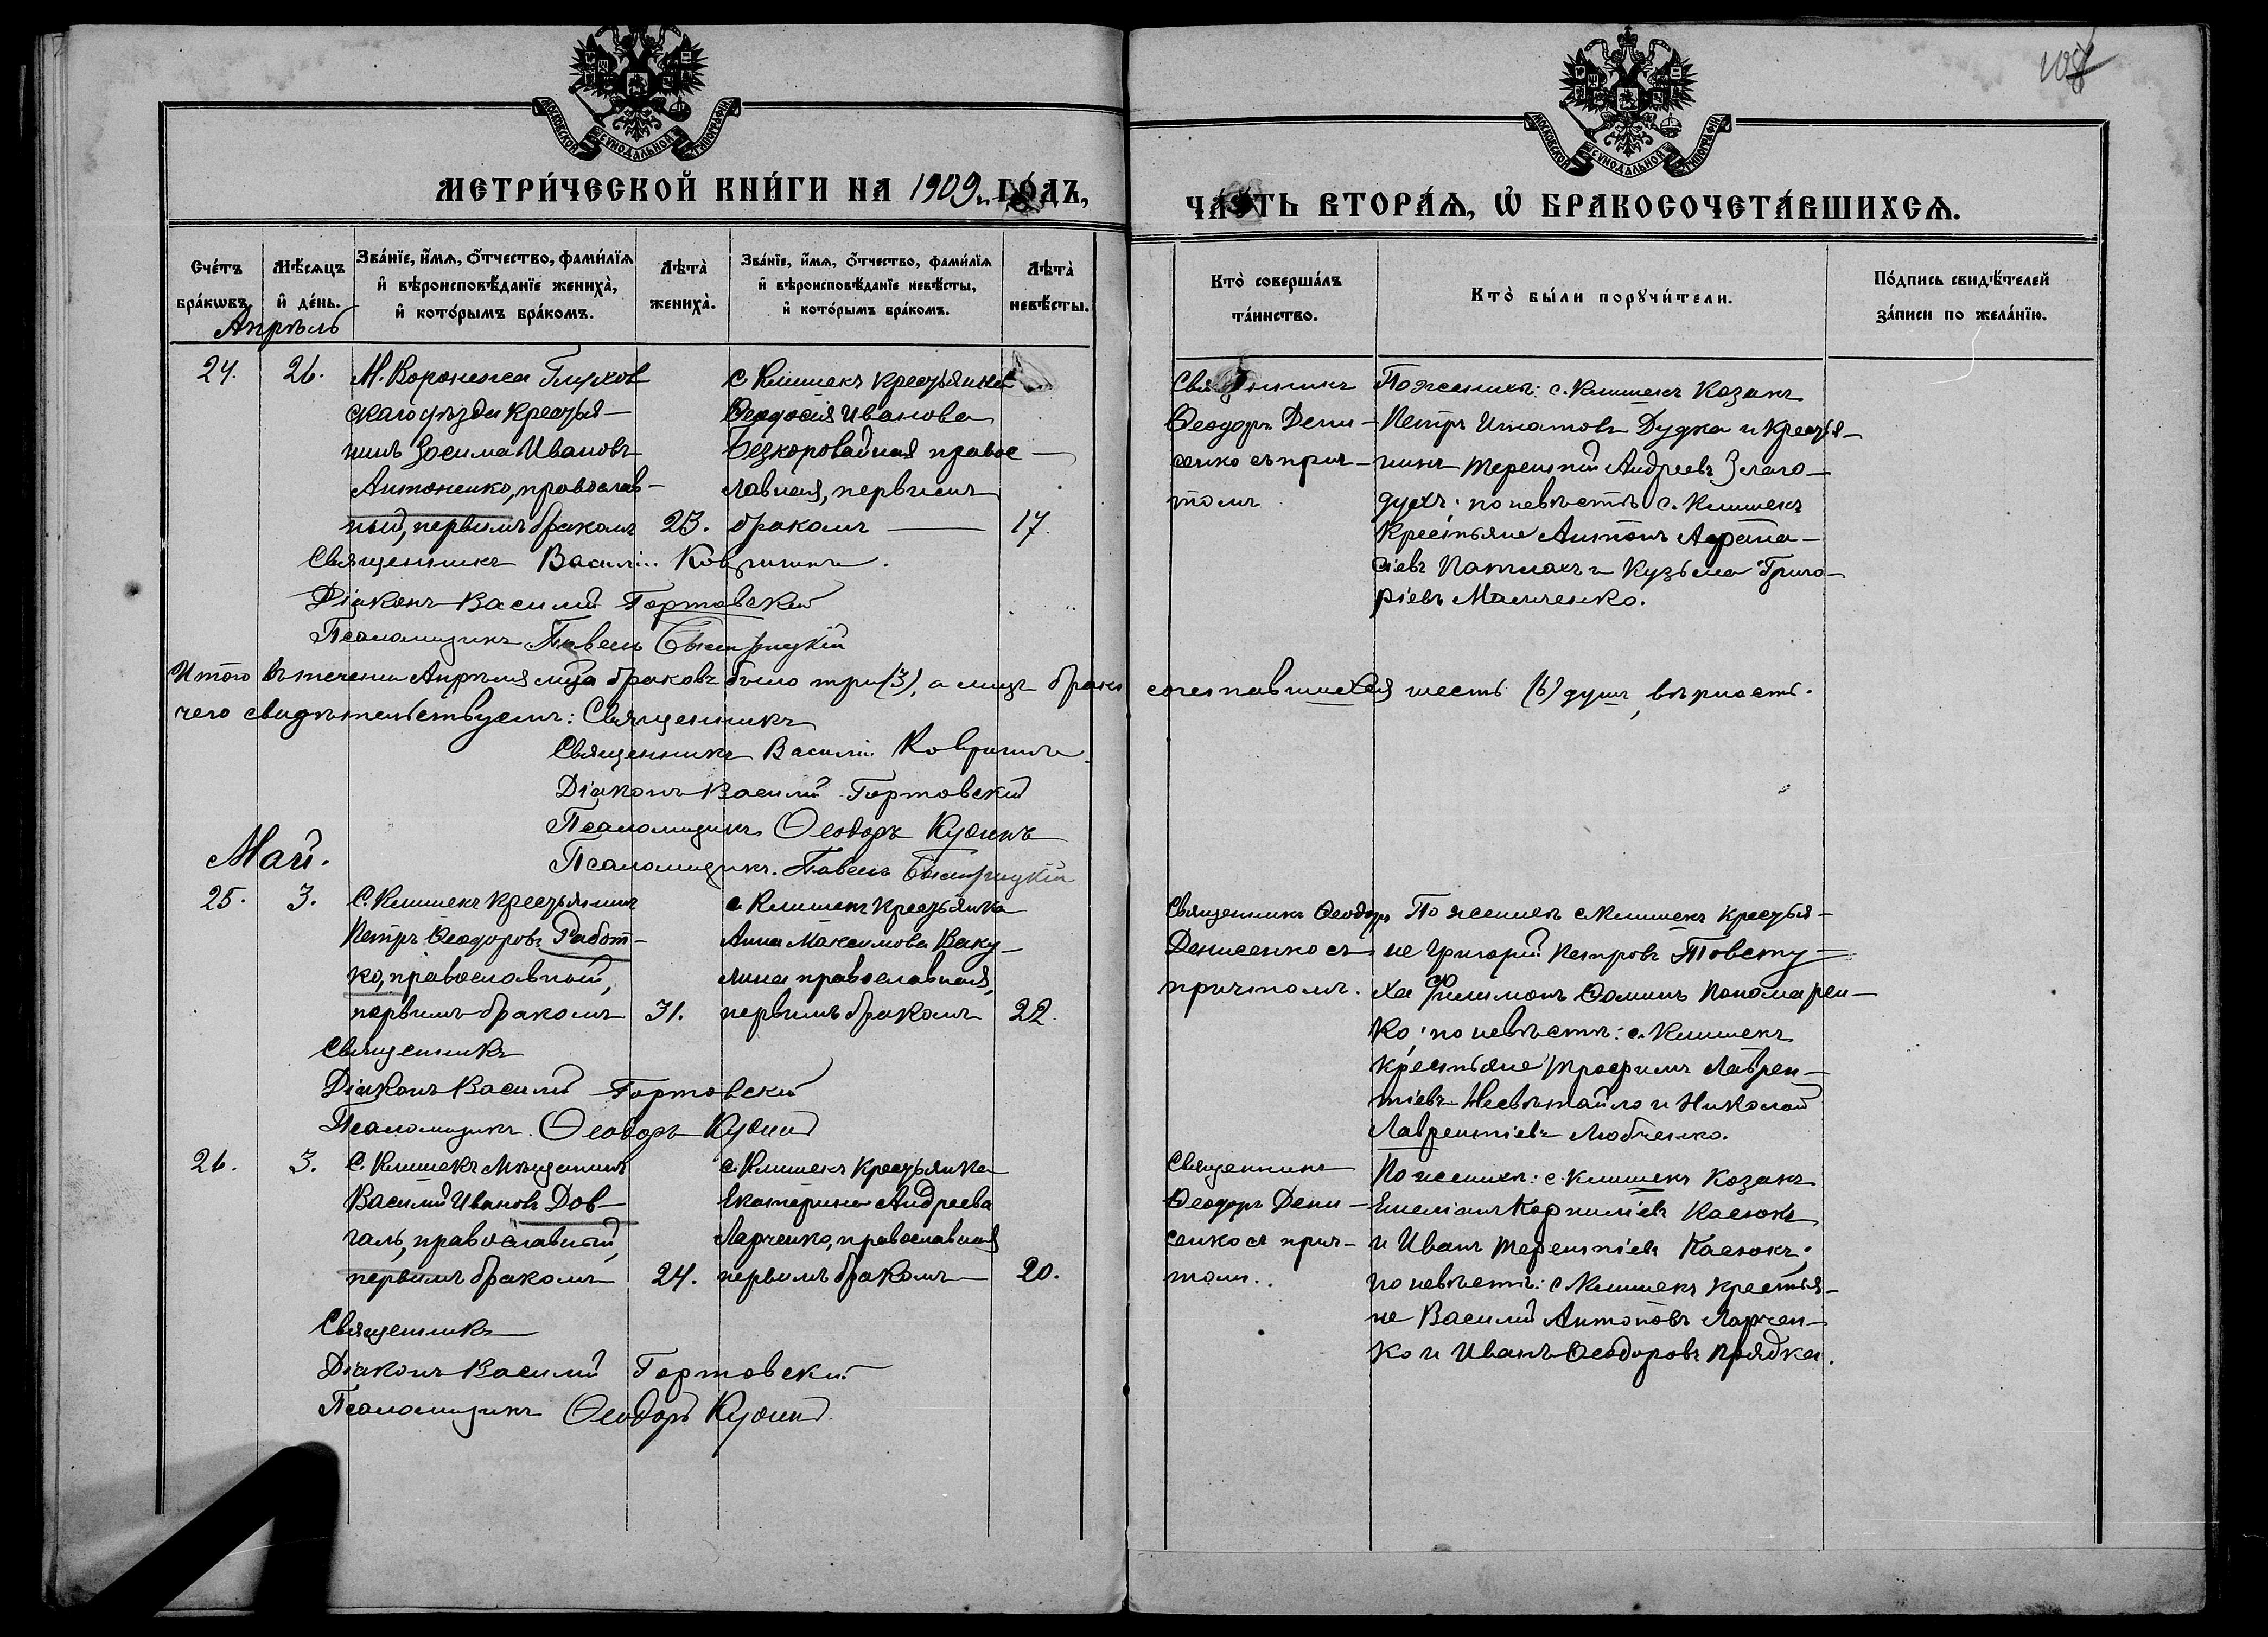 108
МОСКОВСКОЙ СѴНОДАЛЬНОЙ ТИПОГРАФІИ
МОСКОВСКОЙ СѴНОДАЛЬНОЙ ТИПОГРАФІИ
МЕТРИ́ЧЕСКОЙ КНИ́ГИ НА 1909 ГО́ДЪ,
ЧА́СТЬ ВТОРА́Я, Ѡ БРАКОСОЧЕТА́ВШИХСЯ.
Сче́тъ бра́кѡвъ.
Мѣ́сяцъ и҆ де́нь.
Зва́нїе, и҆́мя, ѻ҆́тчество, фами́лїя
и҆ вѣроисповѣ́данїе жениха̀,
и҆ кото́рымъ бра́комъ.
Лѣта̀ жениха̀.
Зва́нїе, и҆́мя, ѻ҆́тчество, фами́лїя
и҆ вѣроисповѣ́данїе невѣ́сты,
и҆ кото́рымъ бра́комъ.
Лѣта̀ невѣ́сты.
Кто̀ соверша́лъ
та́инство.
Кто̀ бы́ли порꙋчи́тели.
По́дпись свидѣ́телей
за́писи по жела́нїю.
Апрѣль
24. 26.
М. Воронежа Глухов
скаго уѣзда крестья-
нинъ Зосима Ивановъ
Антоненко, православ-
ный, первымъ бракомъ
23.
с. Клишекъ крестьянка
Ѳеодосія Иванова
Безкоровайная правос-
лавная, первымъ
бракомъ
17.
Священникъ
Ѳеодоръ Дени-
сенко съ прич-
томъ
По женихѣ: с. Клишекъ козакъ
Петръ Игнатовъ Дудка и крестья-
нинъ Терентій Андреевъ Злаго-
духъ; по невѣстѣ с. Клишекъ
крестьяне Антонъ Афана-
сіевъ Патлахъ и Кузьма Григо-
ріевъ Малченко.
Священникъ Василій
Діаконъ Василій Гортовский
Псаломщикъ Павелъ Быстрицкій
Итого въ теченіи Апрѣля м-ца браковъ было три (3), а лицъ брако сочетавшихся шесть (6) душъ, вѣрность
чего свидѣтельствуемъ: Священникъ
Священникъ Василій
Діаконъ Василій Гортовский
Псаломщикъ Ѳеодоръ
Псаломщикъ Павелъ Быстрицкій
Май.
25. 3.
С. Клишекъ крестьянинъ
Петръ Ѳеодоровъ Работ-
ко, православный,
первымъ бракомъ
31.
с. Клишекъ крестьянка
Анна Максимова Ваку-
лина православная,
первымъ бракомъ
22.
Священникъ Ѳеодоръ
Денисенко съ
причтомъ.
По женихѣ с. Клишекъ крестья-
не Григорій Петровъ Товсту-
ха Филимонъ Ѳоминъ Пономарен-
ко; по невѣстѣ: с. Клишекъ
крестьяне Трофимъ Лаврен-
тіевъ Несвѣтайло и Николай
Лаврентіевъ Любченко.
Священникъ
Діаконъ Василій Гортовский
Псаломщикъ Ѳеодоръ
26. 3.
С. Клишекъ Мѣщанинъ
Василій Ивановъ Дов-
галь, православный,
первымъ бракомъ
24.
с. Клишекъ крестьянка
Екатерина Андреева
Ларченко, православная
первымъ бракомъ
20.
Священникъ
Ѳеодоръ Дени-
сенко съ прич-
томъ.
По женихѣ: с. Клишекъ козакъ
Емеліанъ Корниліевъ Касюкъ
и Иванъ Терентіевъ Касюкъ;
по невѣстѣ: с. Клишекъ крестья-
не Василій Антоновъ Ларчен-
ко и Иванъ Ѳеодоровъ Прядка.
Священникъ
Діаконъ Василій Гортовский
Псаломщикъ Ѳеодоръ